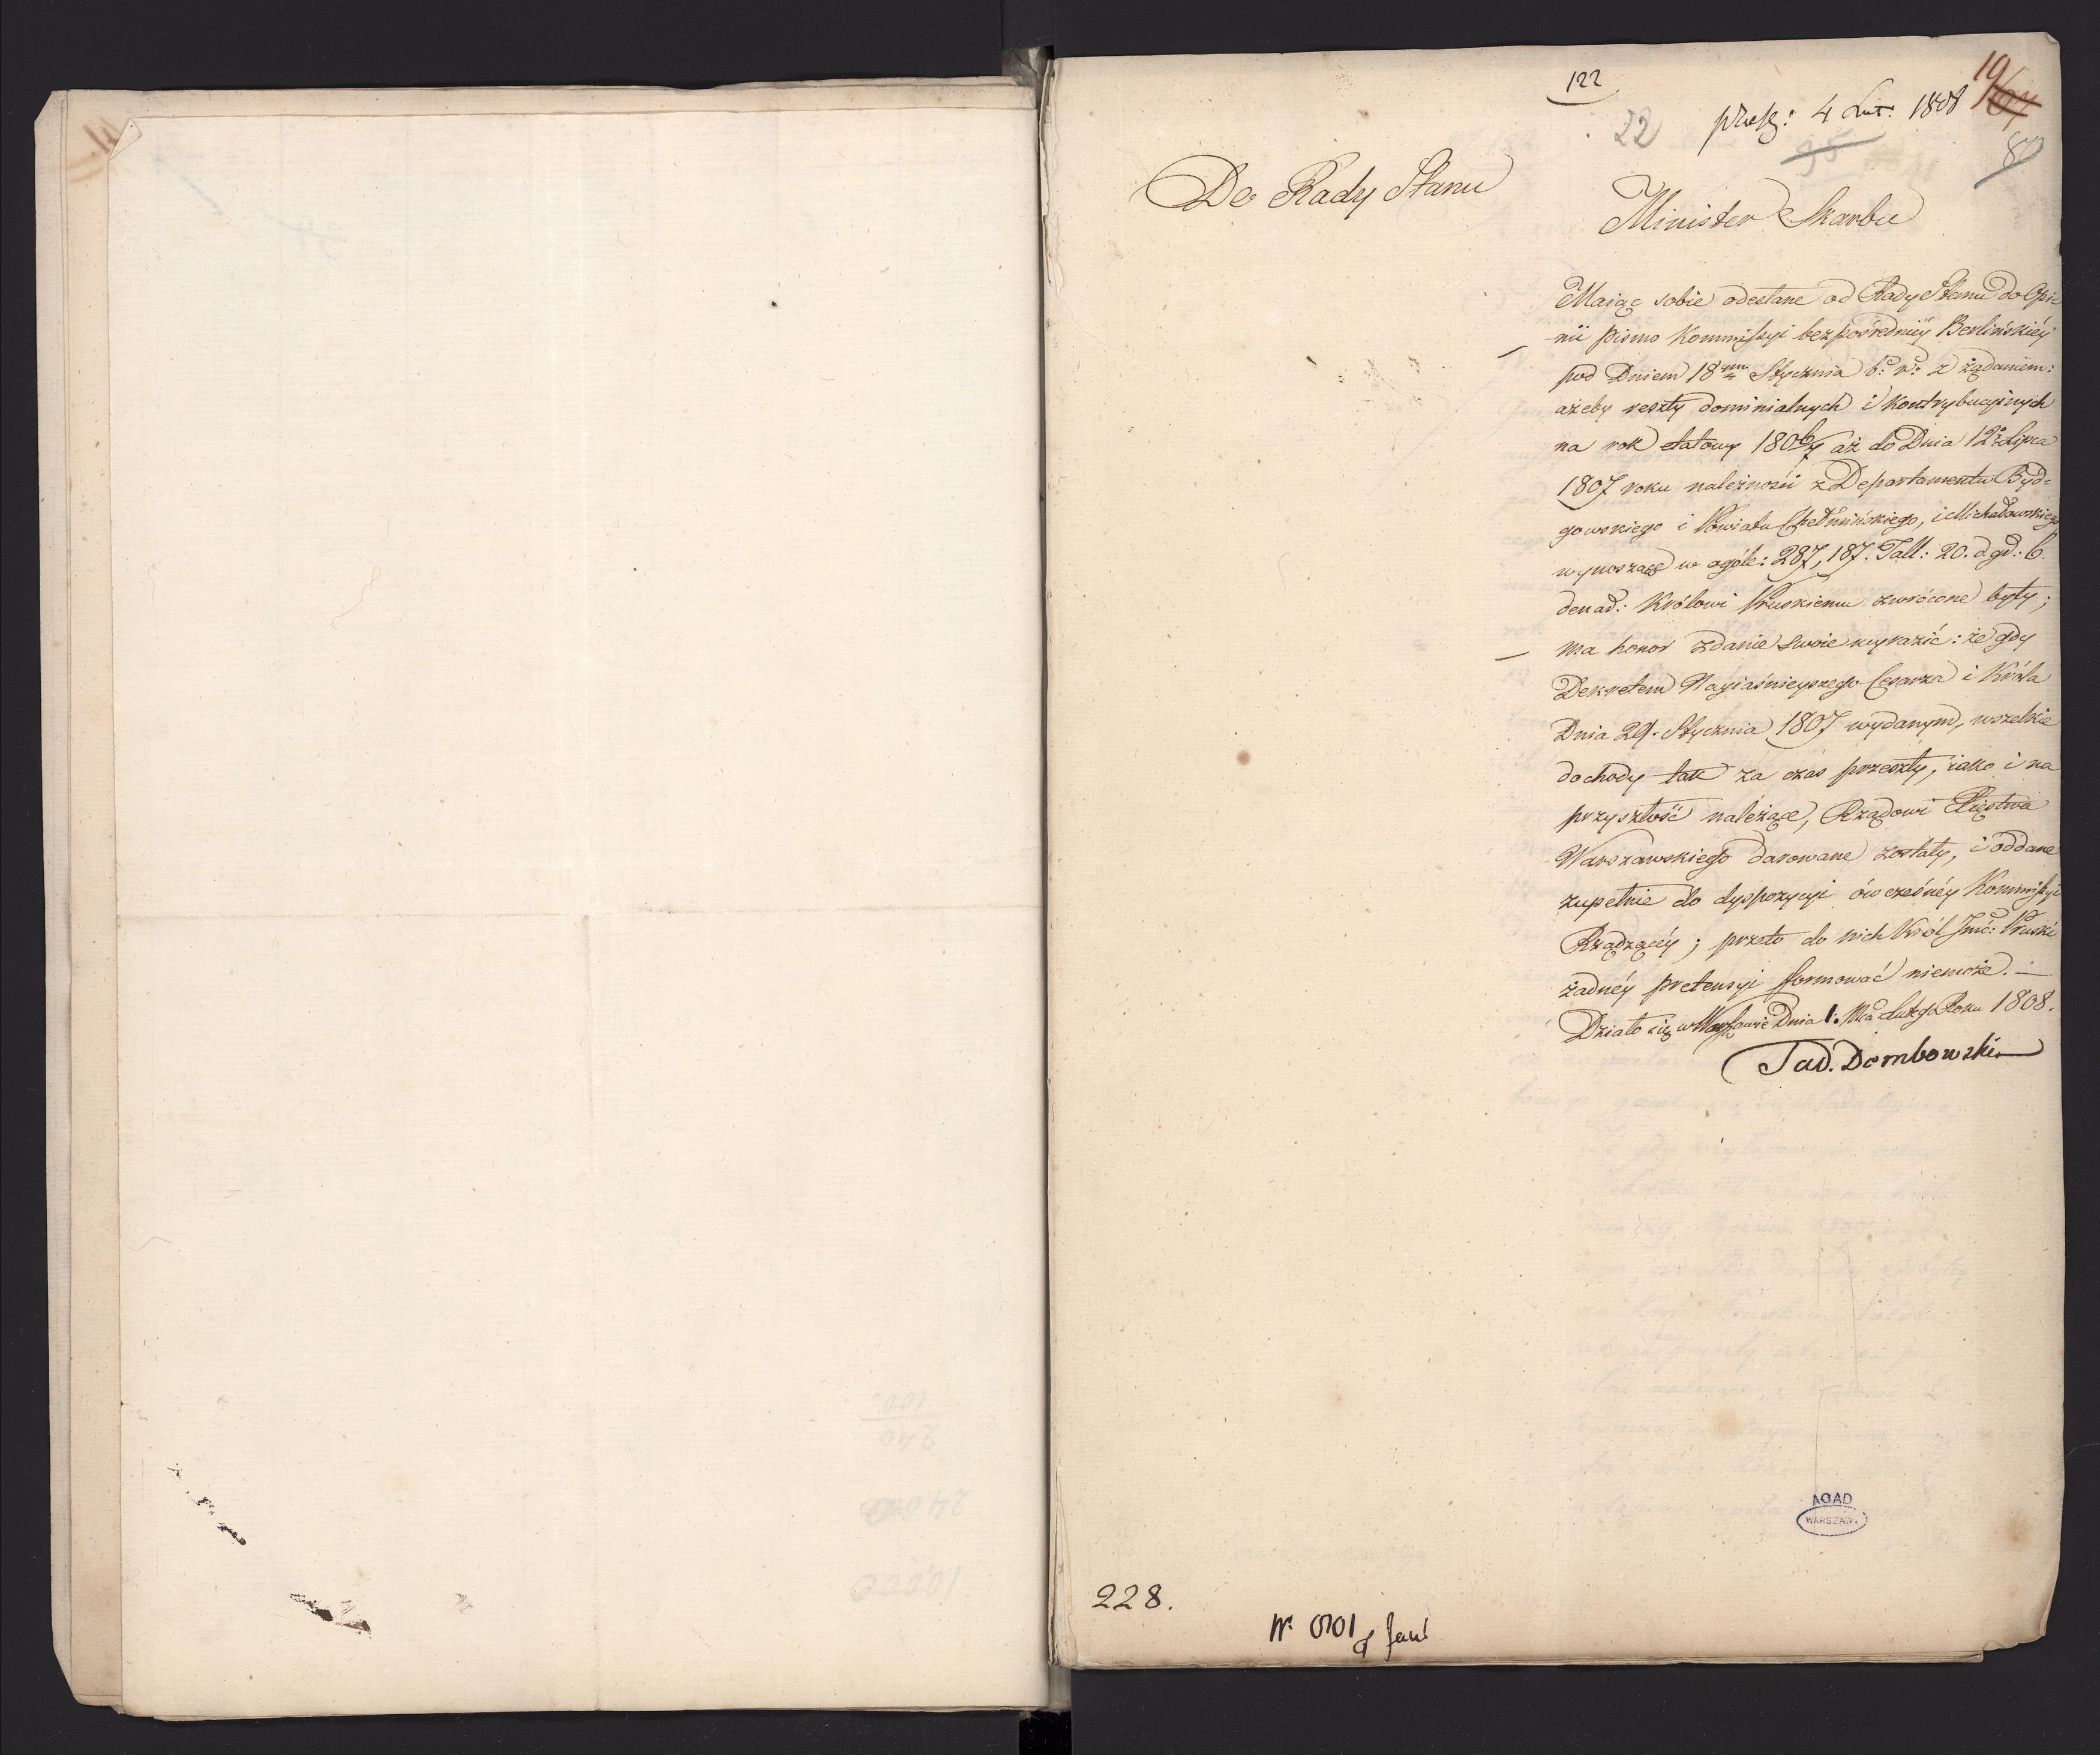 122
19
22
4 Lut: 1808
95
Do Rady Stanu
Minister Skarbu
Maiąc sobie odesłane od Rady Stanu do Opi=
nii pismo Kommissyi bezpośredniéy Berlińskiéy
pod Dniem 18 Stycznia b: r: z żądaniem:
ażeby reszty dominialnych i Kontrybucyinych
na rok etatowy 1806/7 aż do Dnia 12: Lipca
1807 roku należności z Departamentu Byd=
gowskiego i Powiatu Chełmińskiego, i Michałowskiego
wynoszące w ogóle: 287,187. Tall: 20. dgd: 6.
denad: Królowi Pruskiemu zwrócone były;
ma honor zdanie swoie wyrazić: że gdy
Dekretem Nayiaśnieyszego Cesarza i Króla
Dnia 29. Stycznia 1807 wydanym, wszelkie
dochody tak za czas przeszły, iako i na
przyszłość należące, Rządowi Xięstwa
Warszawskiego darowane zostały, i oddane
zupełnie do dyspozycyi ówcześnéy Kommissyi
Rządzącéy; przeto do nich Król Jmć: Pruski
żadnéy pretensyi formować niemoże. —
Działo się w Warszawie Dnia 1: Mca Lutego Roku 1808.
Tad. Dembowski
AGAD
WARSZAWA
228.